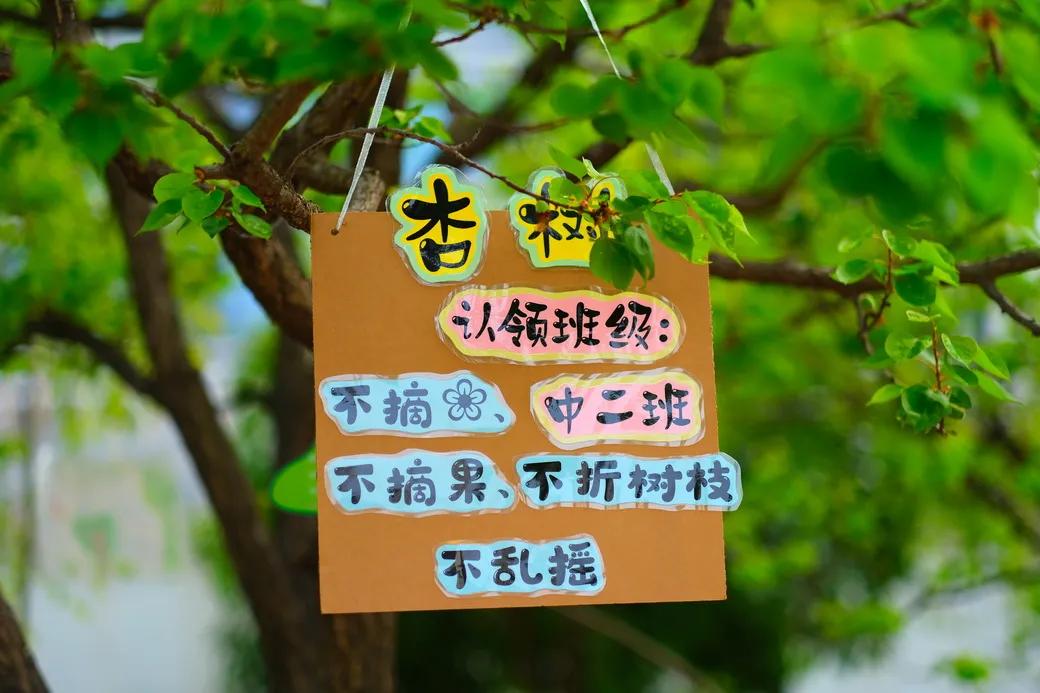 杏树
认领班级:
不摘、
中二班
不摘果、不折树枝
不乱摇